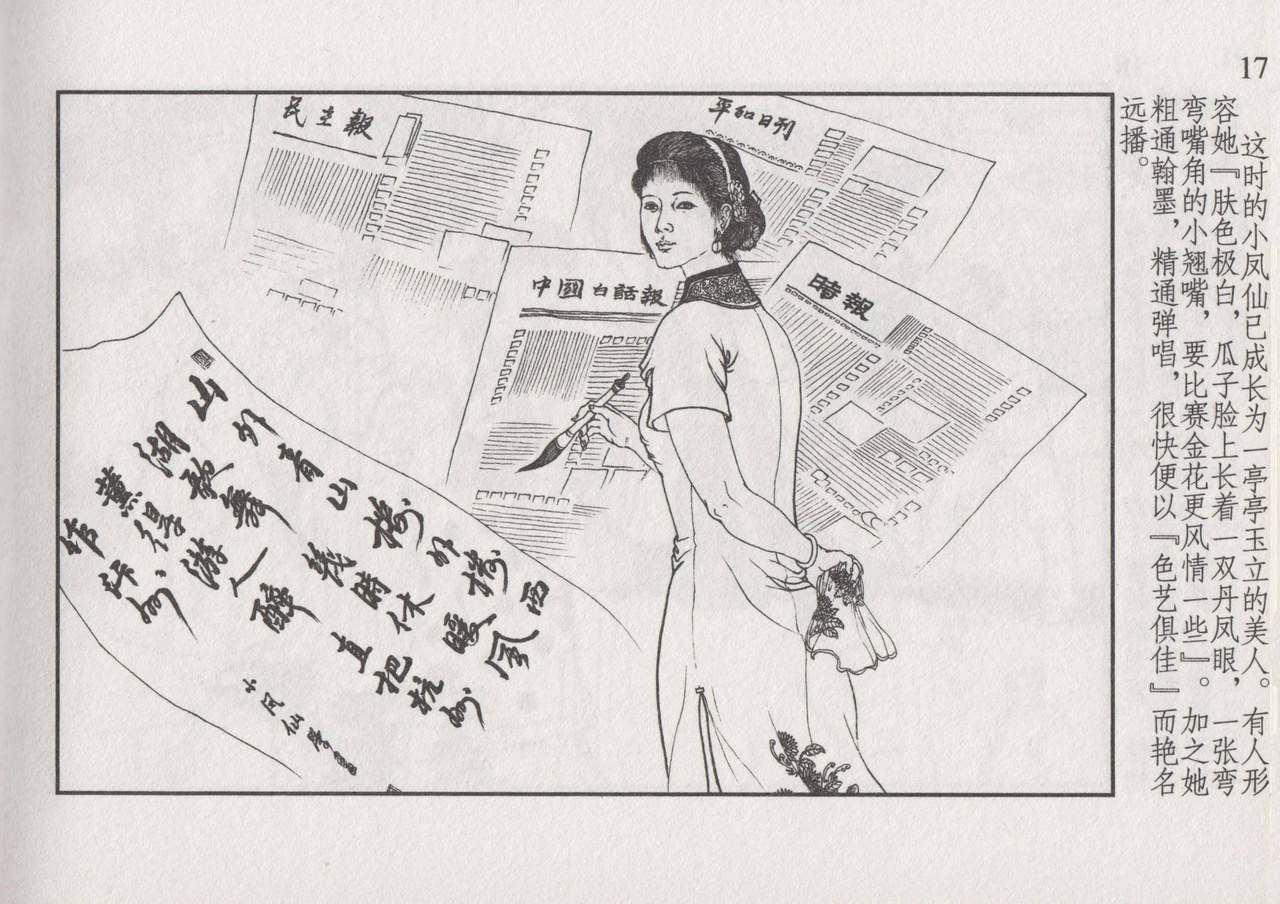 17
这时的小凤仙已成长为一亭亭玉立的美人。有人形
容她『肤色极白，瓜子脸上长着一双丹凤眼，一张弯
弯嘴角的小翘嘴，要比赛金花更风情一些』。加之她
粗通翰墨，精通弹唱，很快便以『色艺俱佳』而艳名
远播。
平和日刊
民主報
時報
中國白話報
山外青山樓外樓西
湖歌舞幾時休暖風
薰得游人醉直把杭州
作汴州
小凤仙